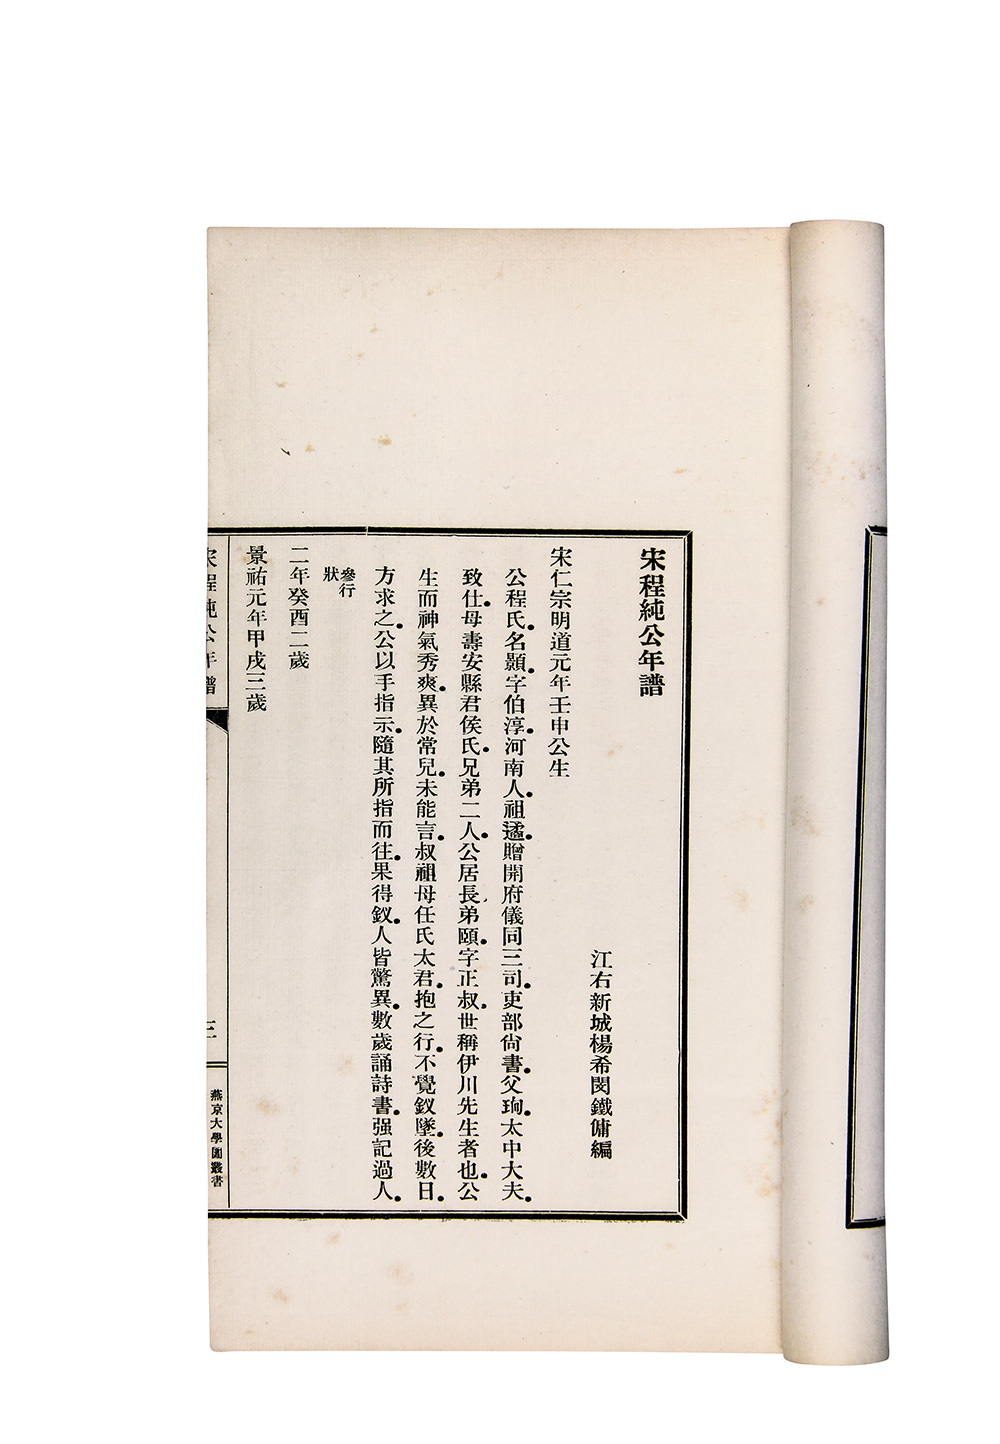 宋程純公年譜
江右新城楊希閔鐵傭編
宋仁宗明道元年壬申公生
公程氏名顥字伯淳河南人祖遹贈開府儀同三司吏部尙書父珦太中大夫
致仕母壽安縣君侯氏兄弟二人公居長弟頤字正叔世稱伊川先生者也公
生而神氣秀爽異於常兒未能言叔祖母任氏太君抱之行不覺釵墜後數日
方求之公以手指示隨其所指而往果得釵人皆驚異數歲誦詩書强記過人
參行
狀
二年癸酉二歲
景祐元年甲戌三歲
宋程純公年譜
三
燕京大學圖叢書